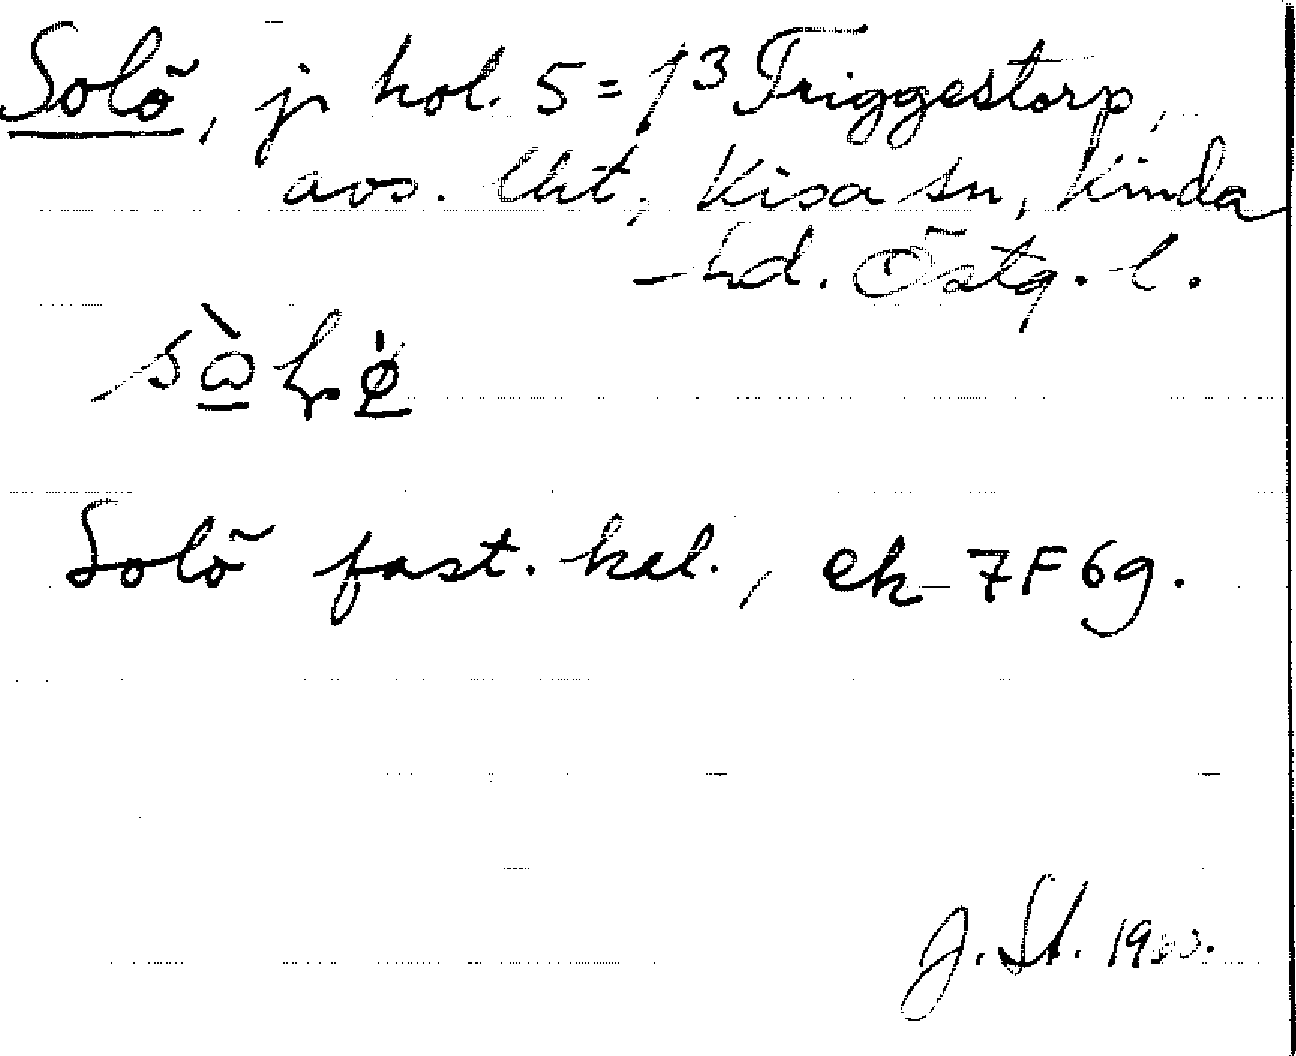 Solö, jr kol. 5 = 1³ Triggestorp,
avs. lht, Kisa sn, Kinda
hd. Östg. l.
Solö fast. kal., ek 7F6g.
J. St.